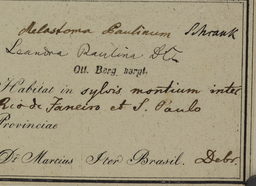 Melastoma Paulinum Schrank
Leandra Paulina DC
Ott. Berg. synt.
Habitat in sylvis montium inter
Rio de Janeiro et S. Paulo
Provinciae
Di Martius Iter Brasil. Debr.